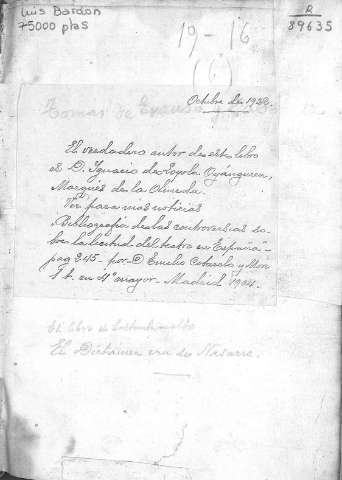 Luis Bardon
75000 ptas
R
89635
19-16
(6)
Octubre de 1922.
Tomas de
El verdadero autor de este libro
es D. Ignacio de Loyola Oyánguren,
Marqués de la Olmeda.
Ver para más noticias
Bibliografía de las controversias so-
bre la licitud del teatro en España-
pag 245- por D Emilio Cotarelo y Mori
1 t. en 4º mayor- Madrid 1904.
El libro es
El Dictámen era de Nasarre.